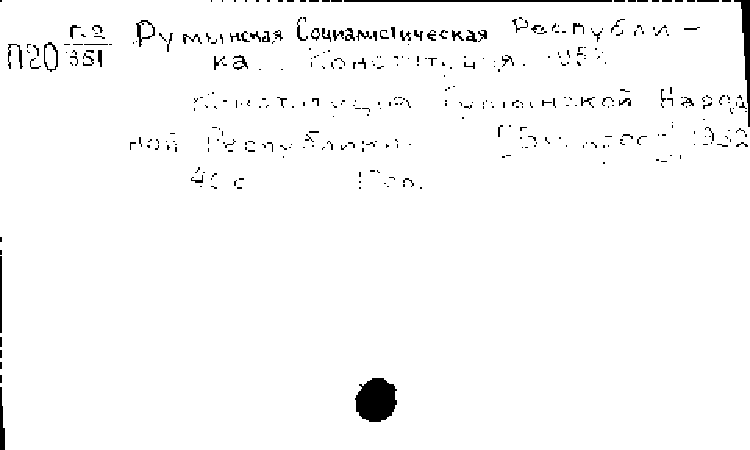 П20 Г.2/351 Румынская Социалистическая Республи-
ка. Конституция. 1952
Конституция Румынской Народ
ной Республики. [Бухарест] 1952
40 с